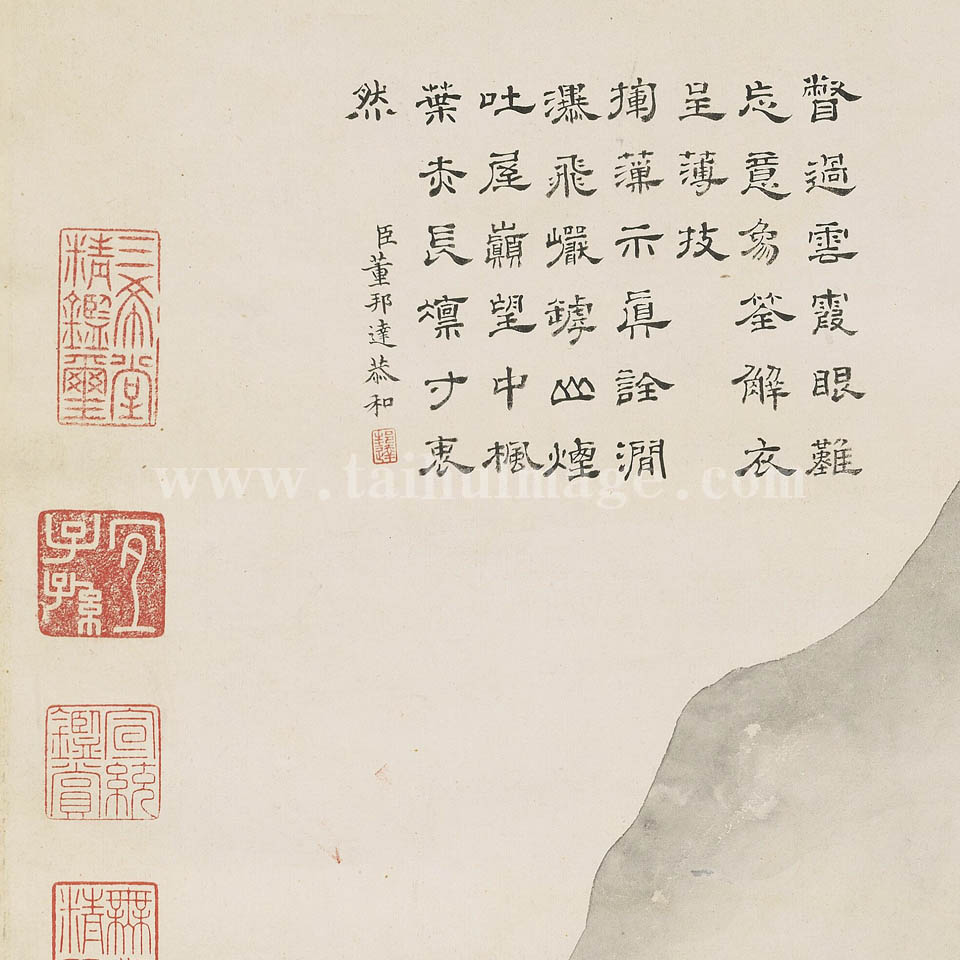 瞥過雲霞眼難
忘意象筌解衣
呈薄技
摛藻示眞詮澗
瀑飛巘罅山煙
吐屋巔望中楓
葉赤長凛寸衷
然
臣董邦達恭和
邦達
三希堂
精鑑璽
宜
子孫
宣統
鑑賞
無
精
www.taihuimage.com